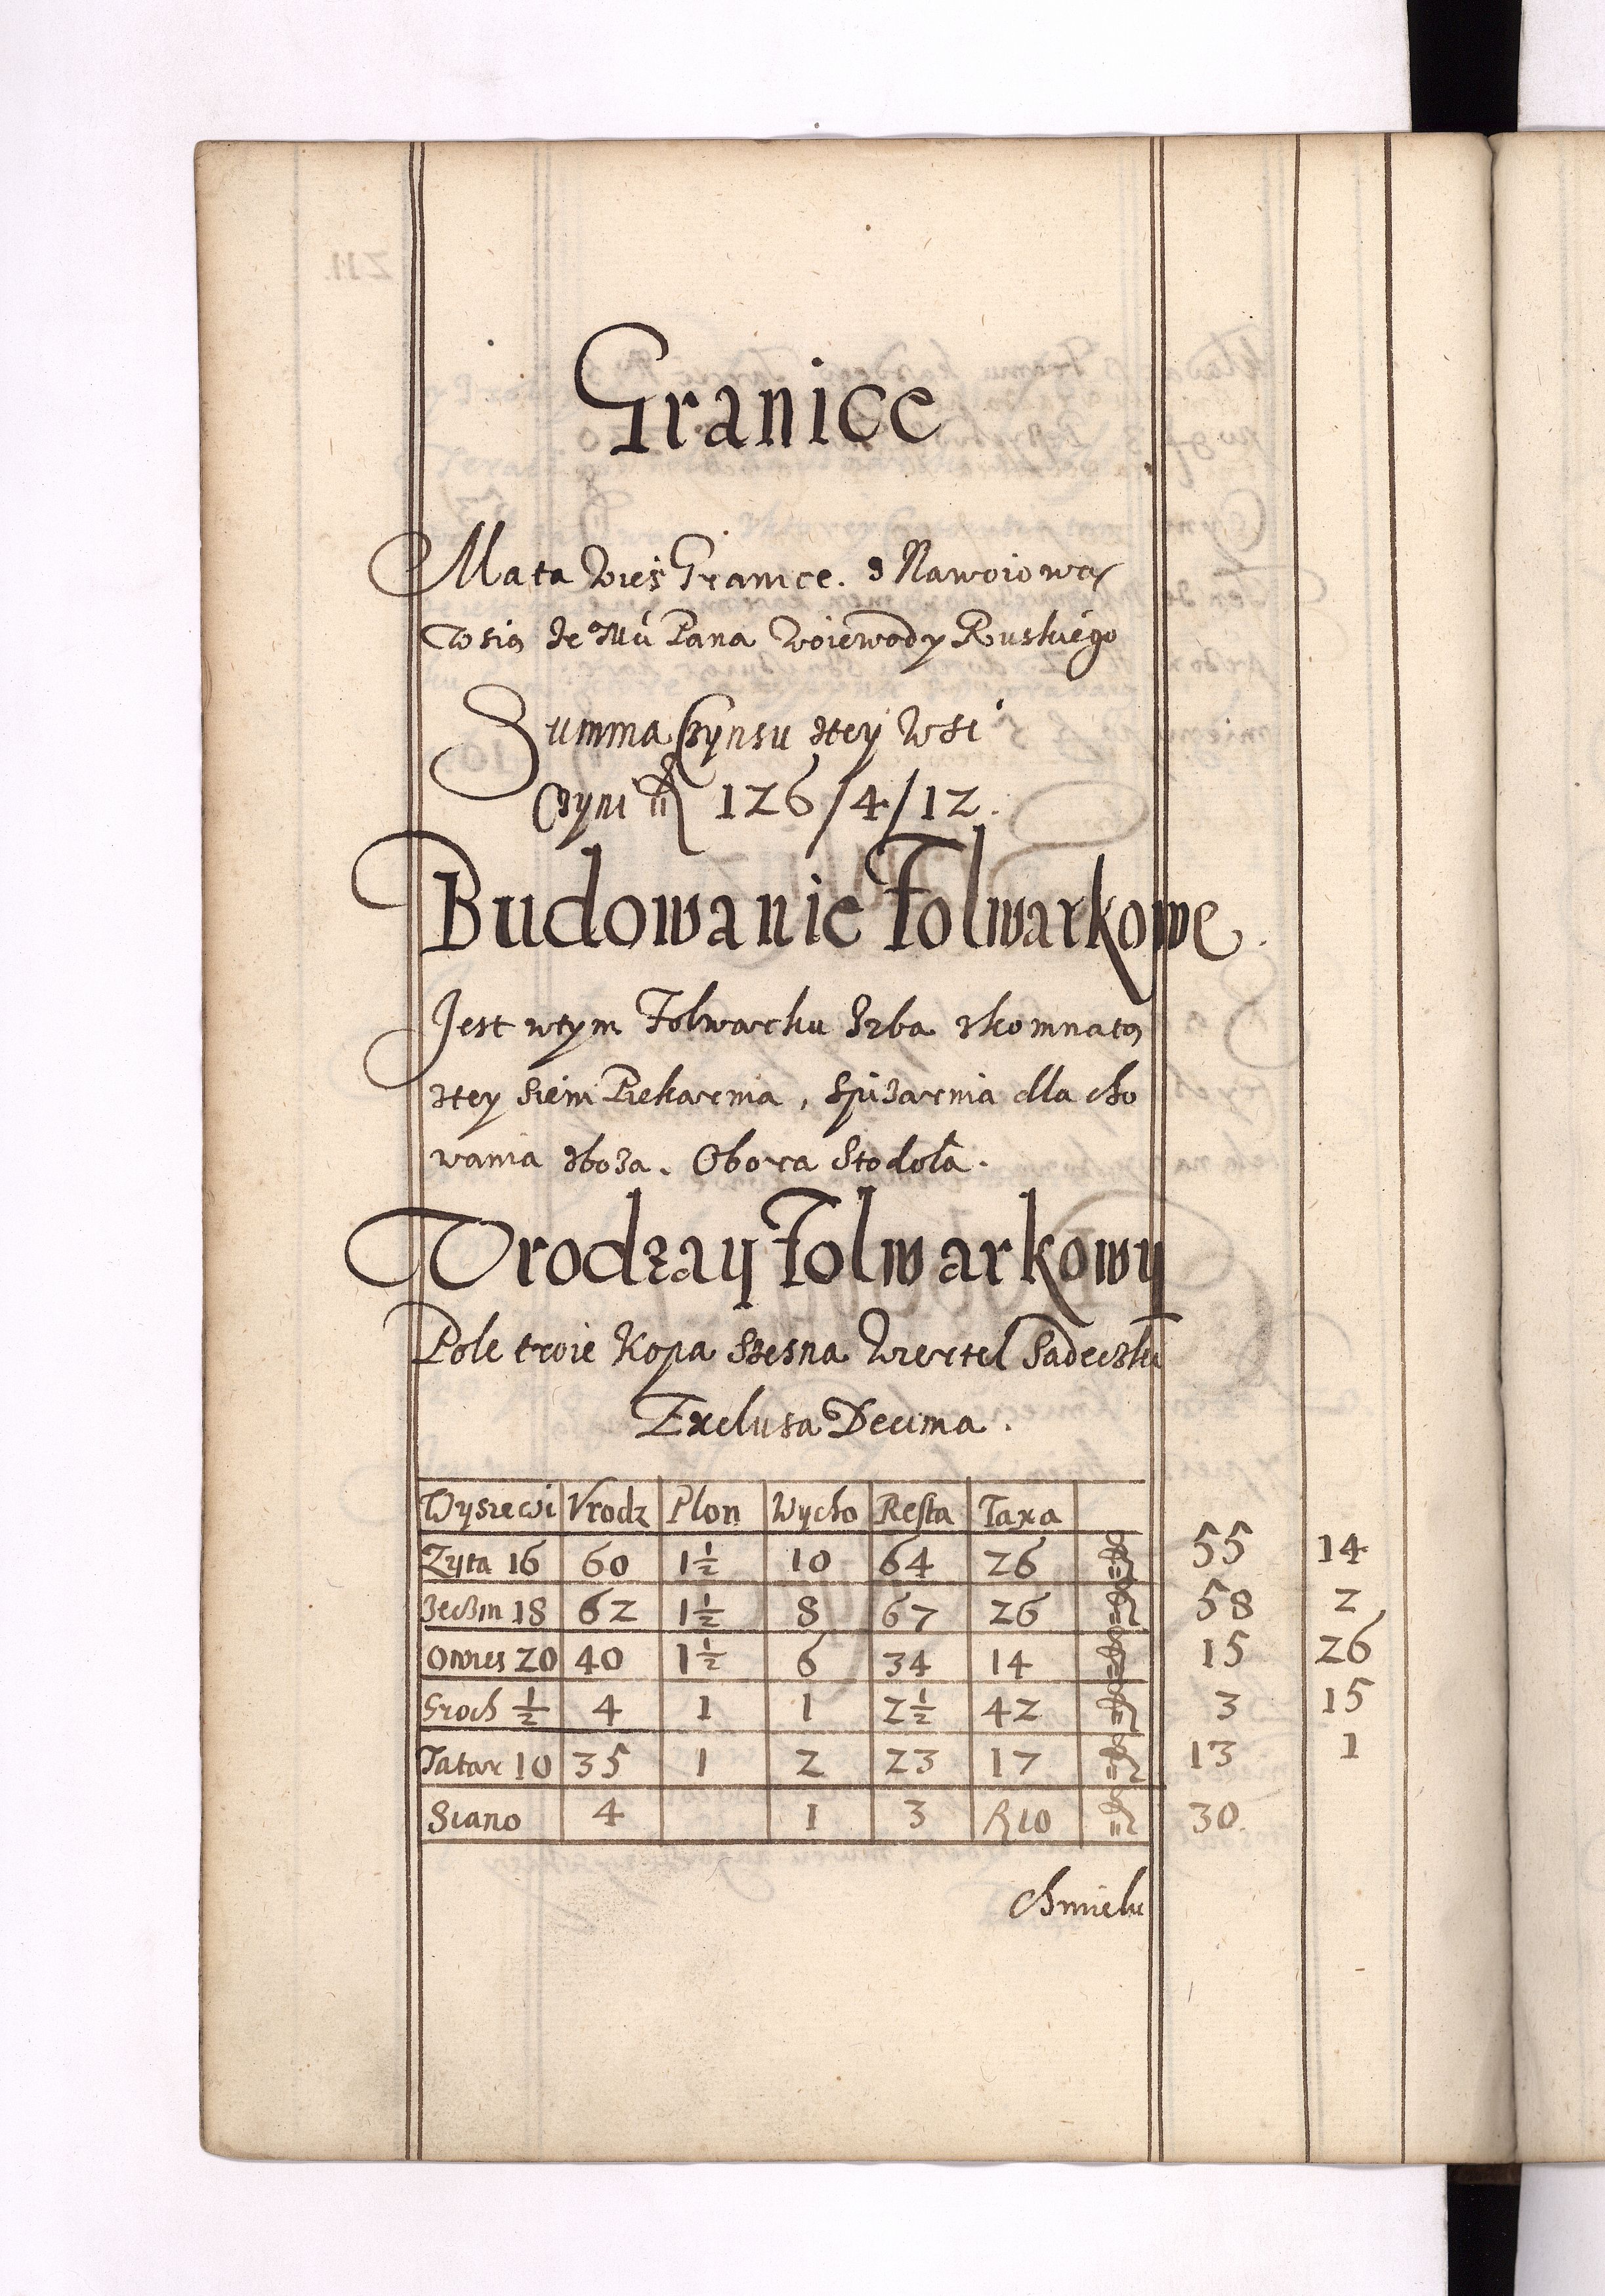 Granice
Mata Wieś Granice. z Nawoiową
Wsią Je Mći Pana Woiewody Ruskiego
Summa Czynsu ztey Wsi
Czyni fl 126/4/12.
Budowanie Folwarkowe.
Jest wtym Folwarku Izba zkomnatą
ztey Sieni Piekarnia, Spiżarnia dla cho
wania zboża. Obora Stodoła.
Vrodzay Folwarkowy
Pole troie Kopa Szesna Wiertel Sadeczki
Exclusa Decima.
Wysiewi Vrodz Plon Wycho Resta Taxa
Zyta 16 60 1½ 10 64 26 fl 55 14
Jeczm 18 62 1½ 8 67 26 fl 58 2
Owies 20 40 1½ 6 34 14 fl 15 26
Groch ½ 4 1 1 2½ 42 fl 3 15
Tatar 10 35 1 2 23 17 fl 13 1
Siano 4 1 3 fl 10 fl 30.
Chmielu